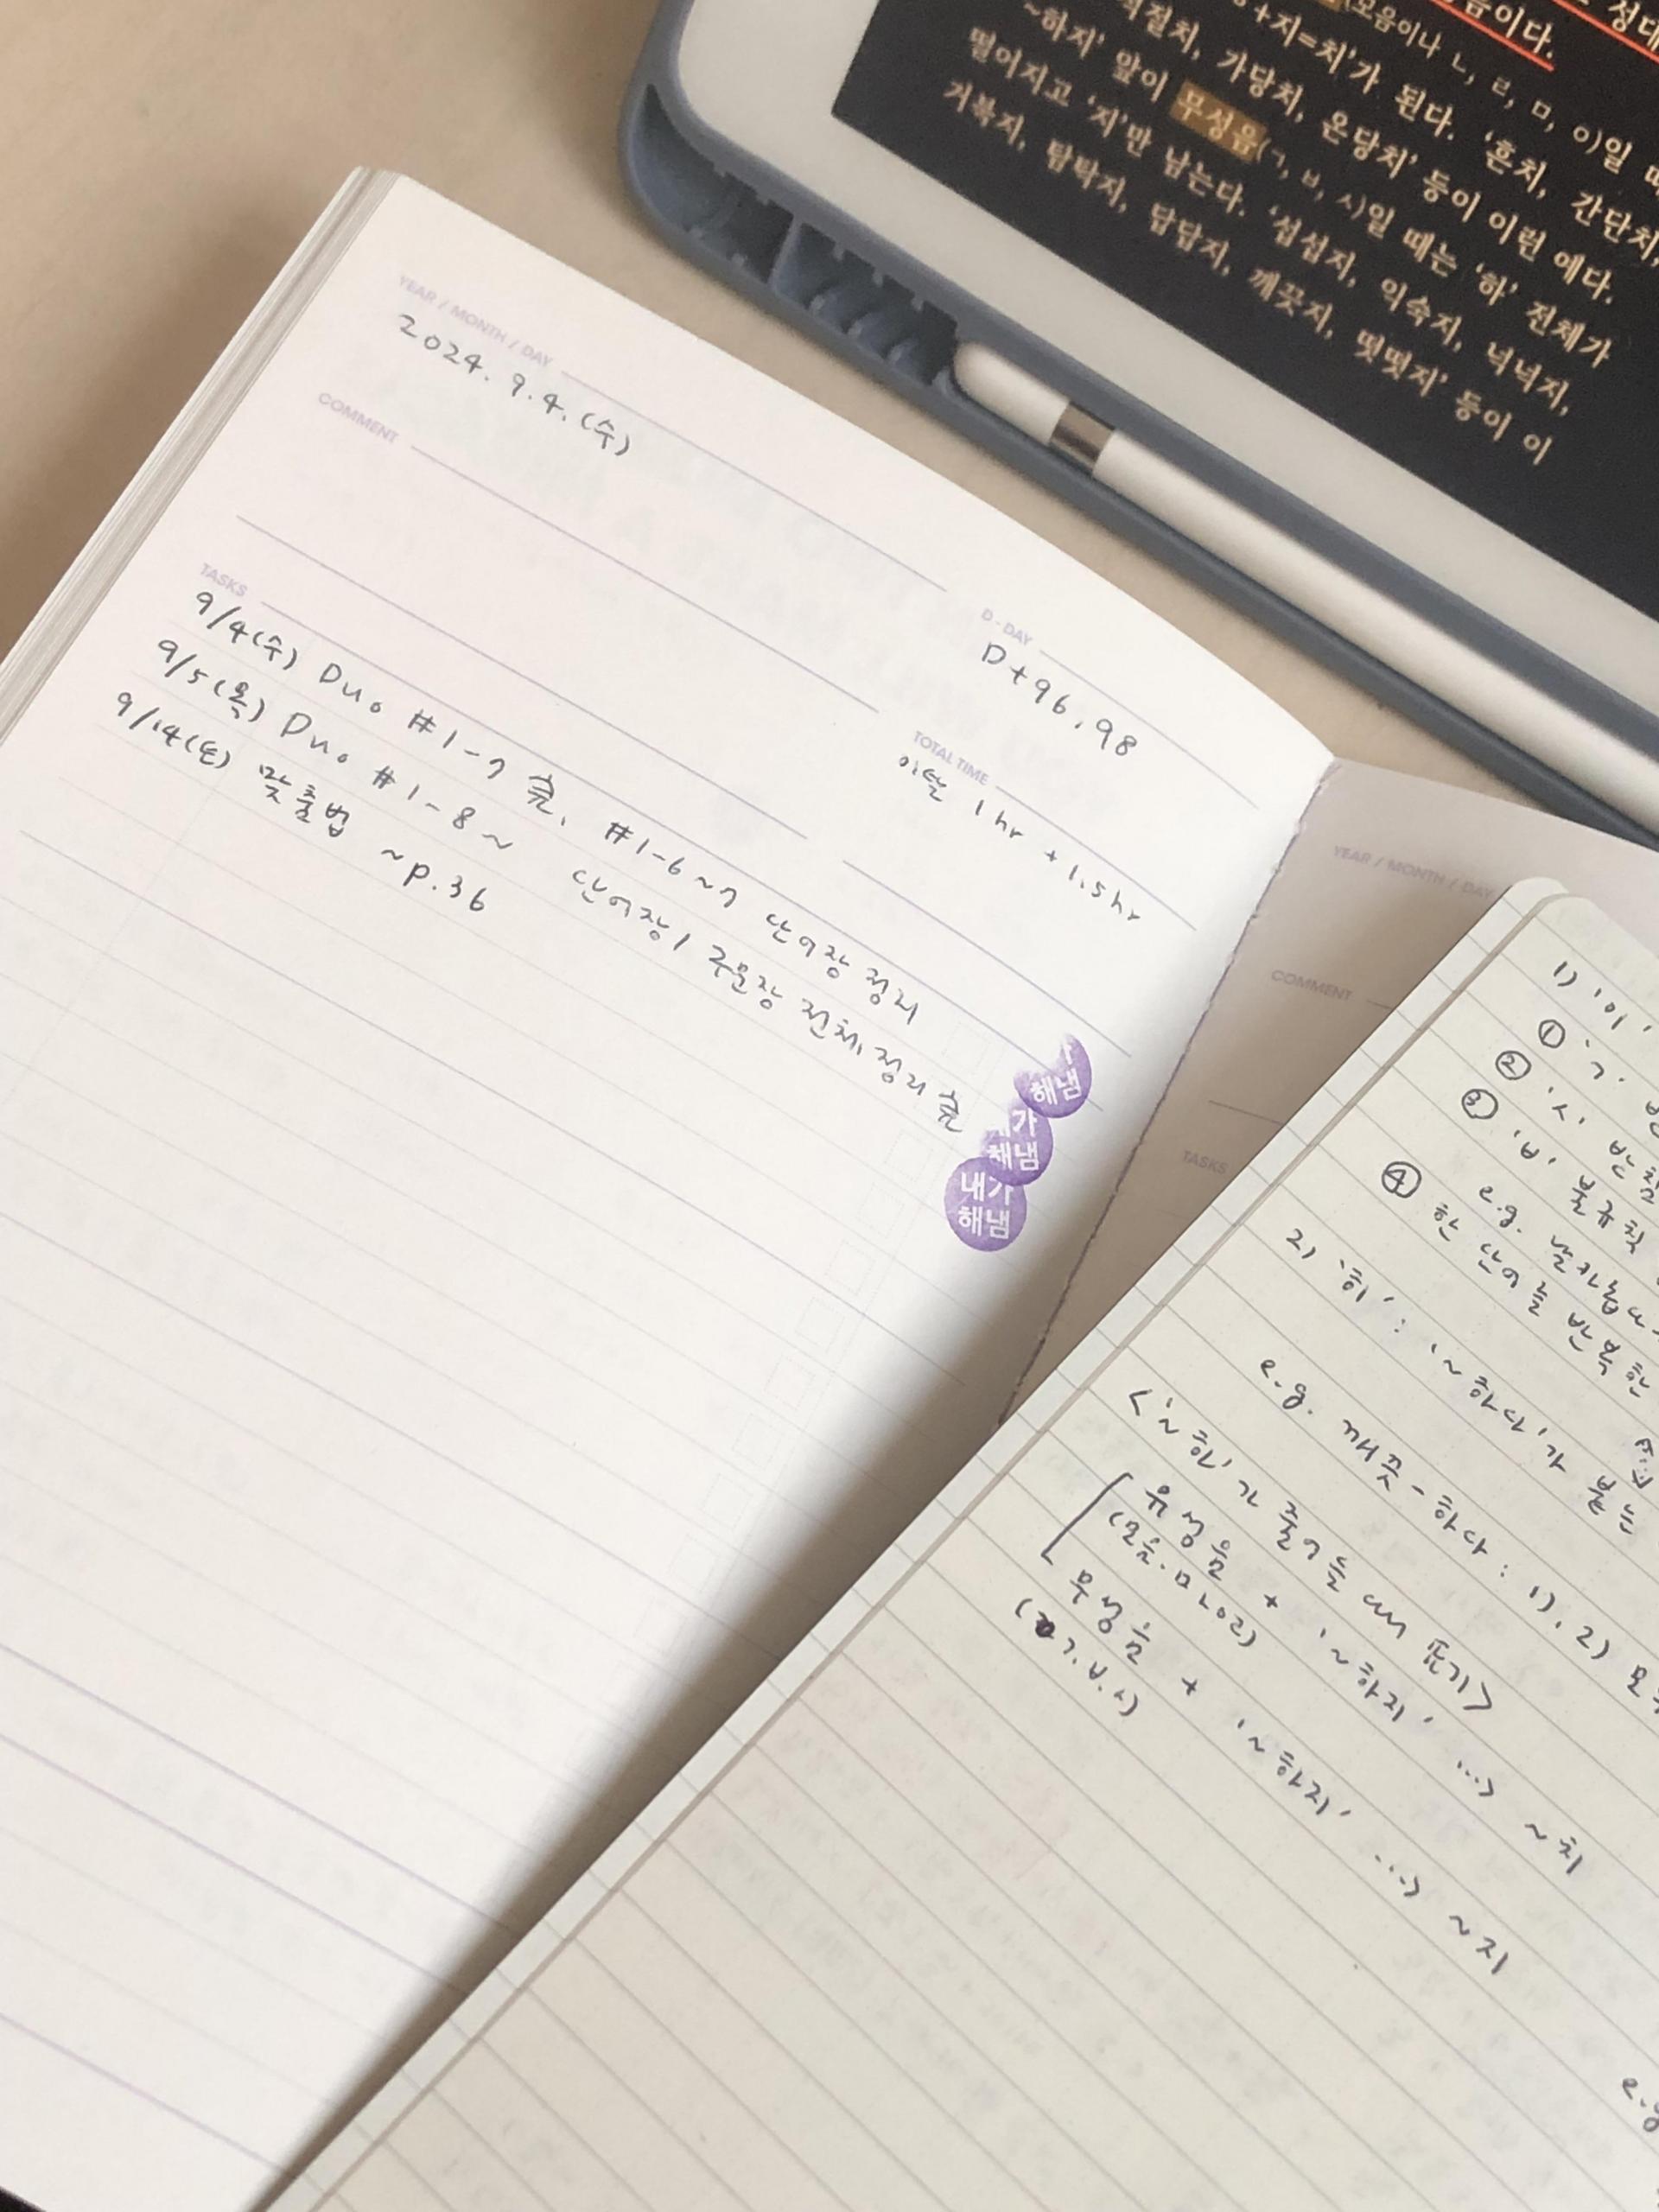 YEAR / MONTH / DAY
2024. 9. 4. (수)
COMMENT
D-DAY
D+96, 98
TOTAL TIME
1hr + 1.5hr
TASKS
9/4(수) Duo #1-7 完, #1-6~7 단어장 정리
9/5(목) Duo #1-8~ 단어장/구문장 전체 정리 完
9/14(토) 맞춤법 ~p.36
해냄
가
해냄
내가
해냄
음이다.
+지=치'가 된다. '흔치, 간단치,
가당치, 온당치' 등이 이런 예다.
~하지' 앞이 무성음(ㄱ, ㅂ, ㅅ)일 때는 '하' 전체가
떨어지고 '지'만 남는다. '섭섭지, 익숙지, 넉넉지,
거북지, 탐탁지, 답답지, 깨끗지, 떳떳지' 등이 이
YEAR / MONTH / DAY
COMMENT
TASKS
1) '이'
① 'ㄱ'
② 'ㅅ' 받침
③ 'ㅂ' 불규칙
e.g.
④ 한 단어를 반복한
2) '히' : '~하다'가 붙는
e.g. 깨끗-하다 : 1), 2) 모두
<'~하'가 줄어들 때 표기>
유성음 + '~하지' …> ~치
(모음·ㅁㄴㅇㄹ)
무성음 + '~하지' …> ~지
(ㄱ.ㅂ.ㅅ)